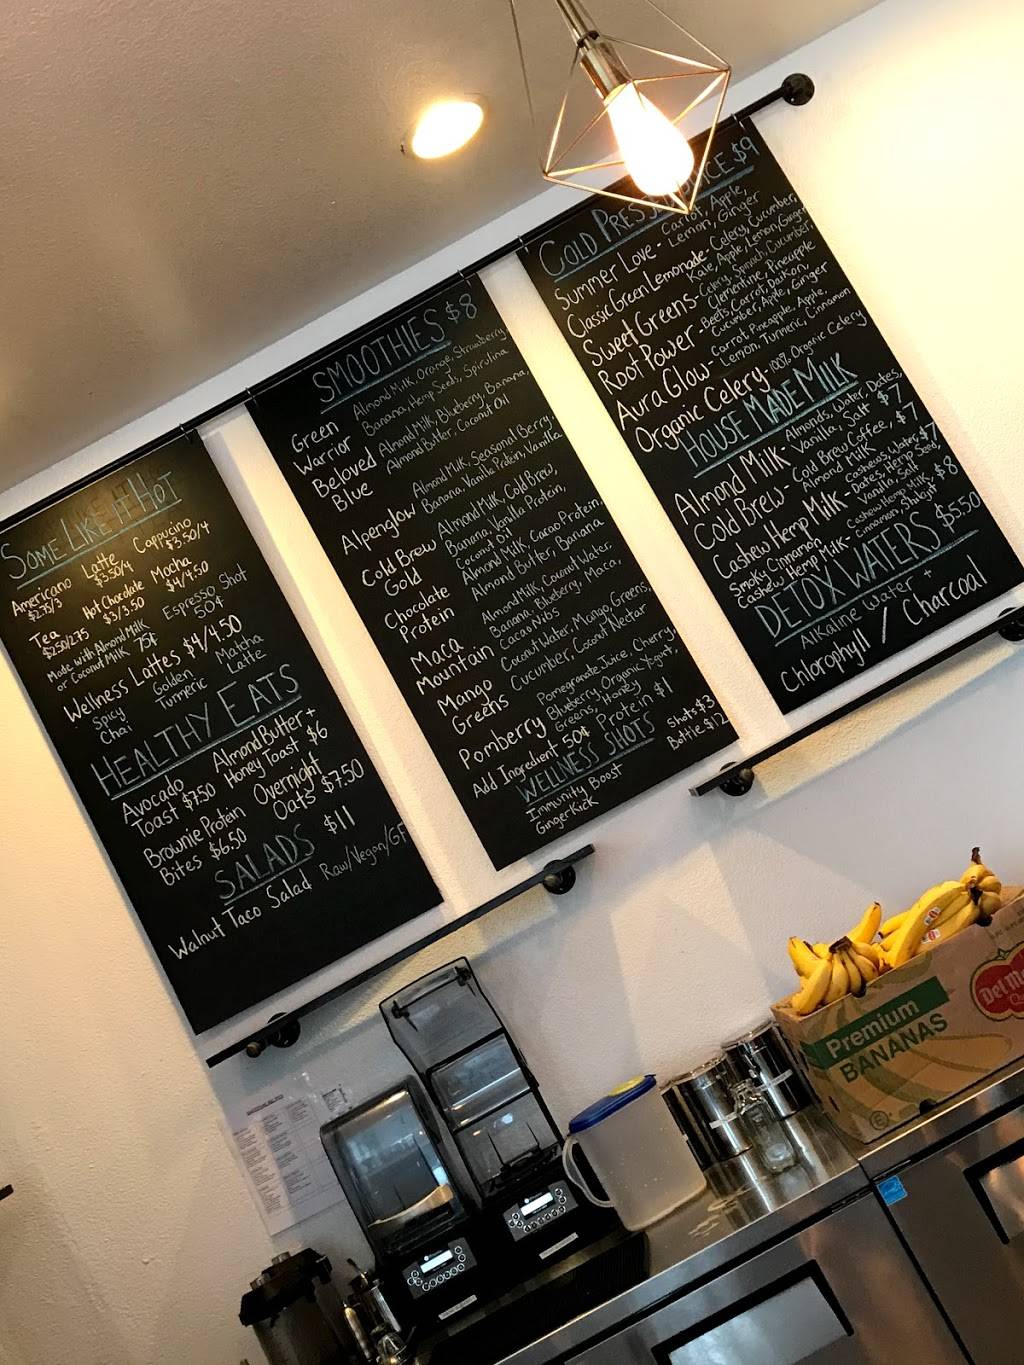 SOME LIKE IT HOT
Americano $2.75/3
Latte $3.50/4
Cappucino $3.50/4
Tea $2.50/2.75
Hot Chocolate $3/3.50
Mocha $4/4.50
Made with Almond Milk
or Coconut Milk 75¢
Espresso Shot
50¢
Wellness Lattes $4/4.50
Spicy
Chai
Golden
Turmeric
Matcha
Latte
HEALTHY EATS
Avocado
Toast $7.50
Almond Butter +
Honey Toast $6
Brownie Protein
Bites $6.50
Overnight
Oats $7.50
SALADS $11
Walnut Taco Salad Raw/Vegan/GF
SMOOTHIES $8
Green
Warrior
Almond Milk, Orange, Strawberry,
Banana, Hemp Seeds, Spirulina
Beloved
Blue
Almond Milk, Blueberry, Banana,
Almond Butter, Coconut Oil
Alpenglow
Almond Milk, Seasonal Berry,
Banana, Vanilla Protein, Vanilla
Cold Brew
Gold
Almond Milk, Cold Brew,
Banana, Vanilla Protein,
Coconut Oil
Chocolate
Protein
Almond Milk, Cacao Protein,
Almond Butter, Banana
Maca
Mountain
Almond Milk, Coconut Water,
Banana, Blueberry, Maca,
Cacao Nibs
Mango
Greens
Coconut Water, Mango, Greens,
Cucumber, Coconut Nectar
Pomberry
Pomegranate Juice, Cherry,
Blueberry, Organic Yogurt,
Greens, Honey
Add Ingredient 50¢ Protein $1
WELLNESS SHOTS
Immunity Boost
GingerKick
Shots $3
Bottle $12
COLD PRESS JUICE $9
Summer Love - Carrot, Apple,
Lemon, Ginger
Classic Green Lemonade - Celery, Cucumber,
Kale, Apple, Lemon, Ginger
Sweet Greens - Celery, Spinach, Cucumber,
Clementine, Pineapple
Root Power - Beets, Carrot, Daikon,
Cucumber, Apple, Ginger
Aura Glow - Carrot Pineapple, Apple,
Lemon, Turmeric, Cinnamon
Organic Celery - 100% Organic Celery
HOUSE MADE MILK
Almond Milk - Almonds, Water, Dates,
Vanilla, Salt $7
Cold Brew - Cold Brew Coffee,
Almond Milk $7
Cashew Hemp Milk - Cashews, Water,
Dates, Hemp Seed,
Vanilla, Salt $7
Smoky Cinnamon
Cashew Hemp Milk - Cashew Hemp Milk,
Cinnamon, Shilajit $8
DETOX WATERS $5.50
Alkaline Water +
Chlorophyll / Charcoal
Premium
BANANAS
Del Mo